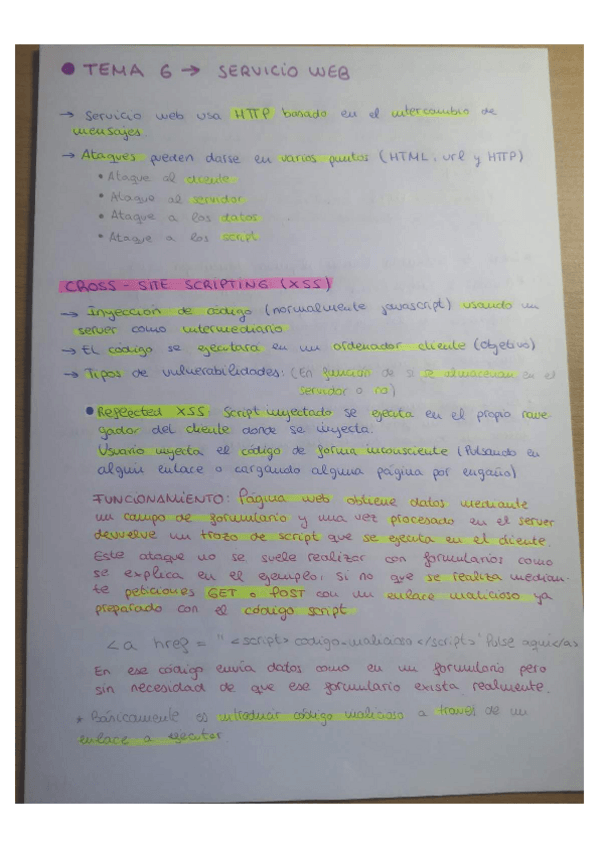 ● TEMA 6 → SERVICIO WEB
→ Servicio web usa HTTP basado en el intercambio de
mensajes
→ Ataques pueden darse en varios puntos (HTML, url y HTTP)
• Ataque al cliente
• Ataque al servidor
• Ataque a los datos
• Ataque a los script
CROSS-SITE SCRIPTING (XSS)
→ Inyección de código (normalmente javascript) usando un
server como intermediario
→ El código se ejecutará en un ordenador cliente (objetivo)
→ Tipos de vulnerabilidades: (En función de si se almacenan en el
servidor o no)
● Reflected XSS: Script inyectado se ejecuta en el propio nave-
gador del cliente donde se inyecta.
Usuario inyecta el código de forma inconsciente (Pulsando en
algún enlace o cargando alguna página por engaño)
FUNCIONAMIENTO: Página web obtiene datos mediante
un campo de formulario y una vez procesado en el server
devuelve un trozo de script que se ejecuta en el cliente.
Este ataque no se suele realizar con formularios como
se explica en el ejemplo, si no que se realiza median-
te peticiones GET o POST con un enlace malicioso ya
preparado con el código script
<a href = "<script> codigo-malicioso </script>" Pulse aqui </a>
En ese código envía datos como en un formulario pero
sin necesidad de que ese formulario exista realmente.
* Básicamente es introducir código malicioso a través de un
enlace a ejecutar.